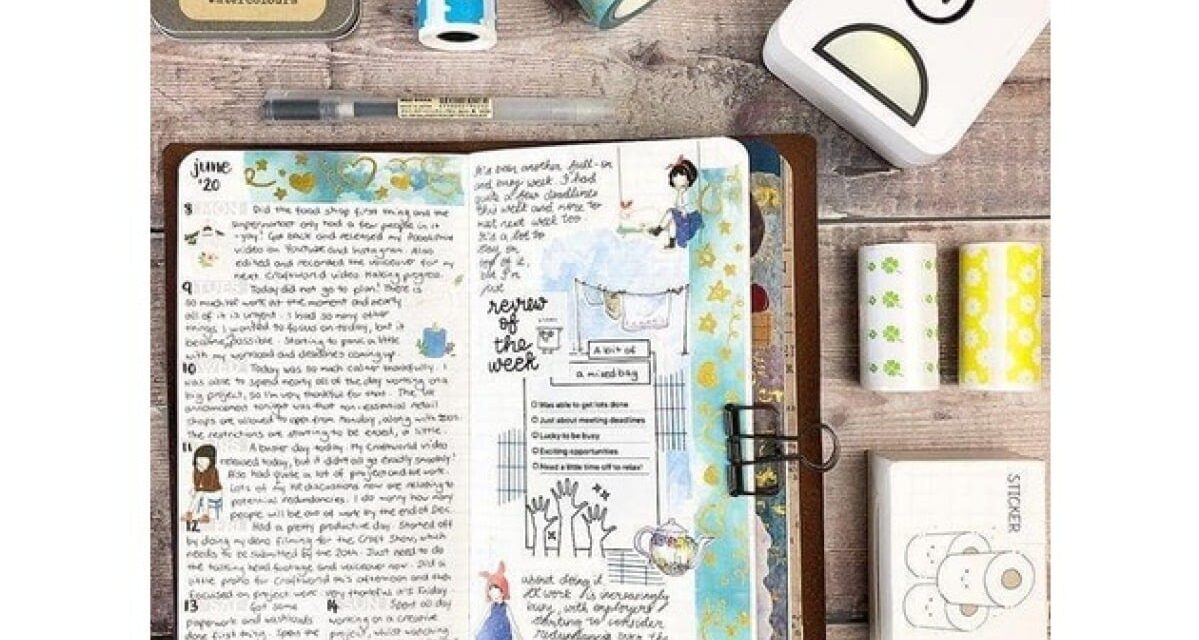 watercolours
june
'20
8 Did the food shop first thing and the
supermarket only had a few people in it
- yay! Got back and released my
video on YouTube and Instagram. Also
edited and recorded the voiceover for my
next Craftworld video. Making progress.
9 Today did not go to plan! There is
so much work at the moment and nearly
all of it is urgent. I had so many other
things I wanted to focus on today, but it
became possible. Starting to panic a little
with my workload and deadlines coming up.
10 Today was so much calmer thankfully. I
was able to spend nearly all of the day working on a
big project, so I'm very thankful for that. The
announcement tonight was that non-essential retail
shops are allowed to open from Monday, along with zoos.
The restrictions are starting to be eased, a little.
11 A busier day today. My Craftworld video
released today, but it didn't all go exactly smoothly!
Also had quite a lot of project and work.
Lots of my discussions now are relating to
potential redundancies. I do worry how many
people will be out of work by the end of Dec.
12 Had a pretty productive day. Started off
by doing my demo filming for the Craft Show, which
needs to be submitted by the 20th. Just need to do
the talking head footage and voiceover now. Did a
little promo for Craftworld this afternoon and then
focused on project work. Very thankful it's Friday.
13 Got some
paperwork and
done first thing. Spent the
14 Spent all day
working on a creative
project, whilst watching
It's been another full-on
and busy week. I had
quite a few deadlines
this week and more to
meet next week too.
It's a lot to
stay on
top of it,
but I'm
just
review
of
the
week
A bit of
a mixed bag
Was able to get lots done
Just about meeting deadlines
Lucky to be busy
Exciting opportunities
Need a little time off to relax!
about doing it.
work is increasingly
busy, with employers
starting to consider
redundancies over the
STICKER